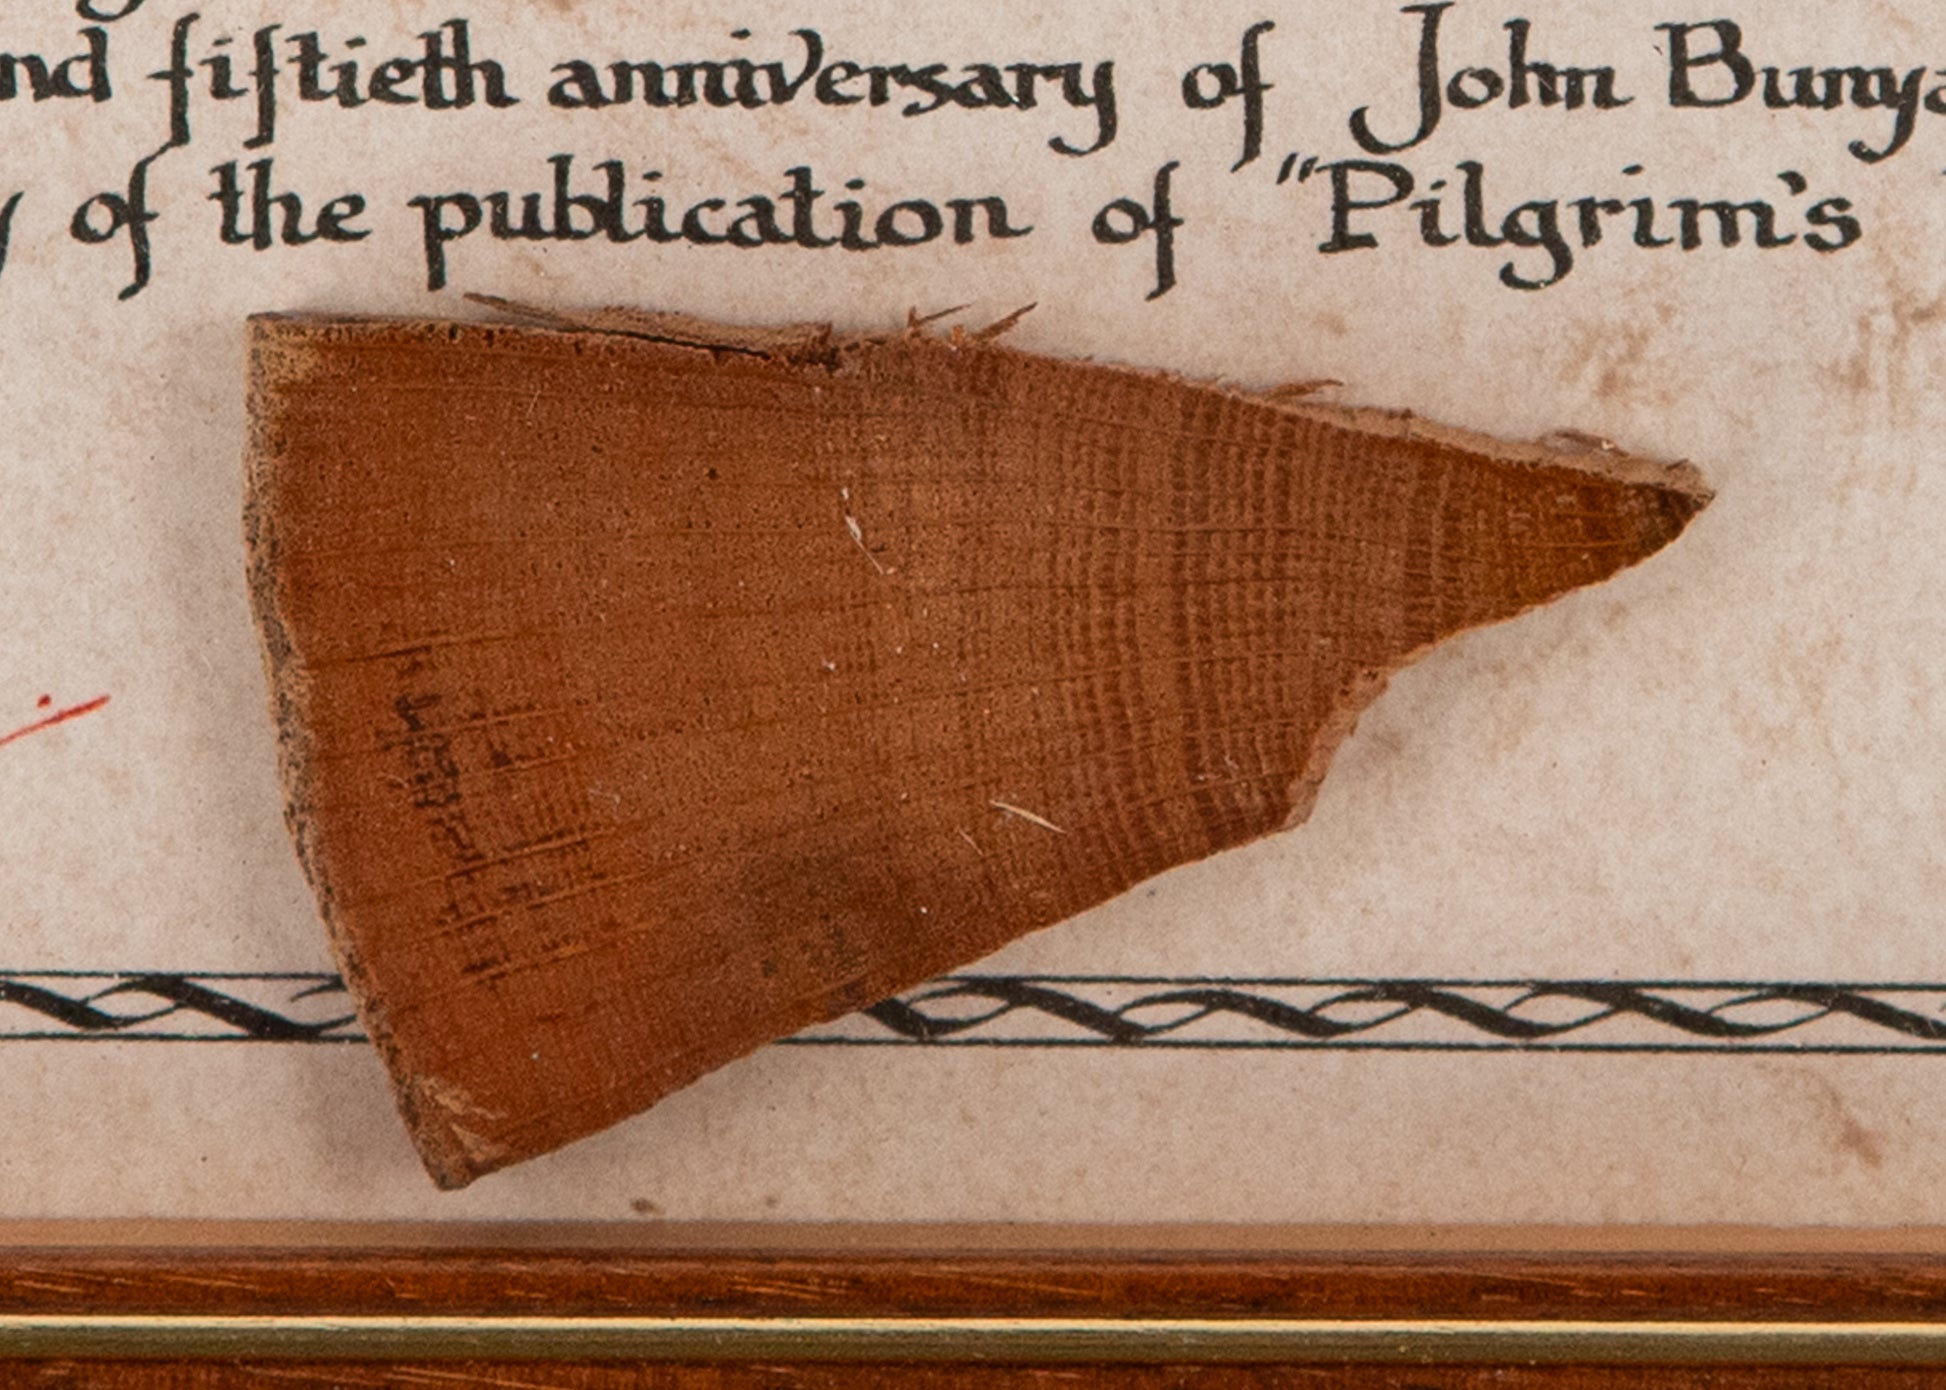 nd fiftieth anniversary of John Bunya
y of the publication of "Pilgrim's